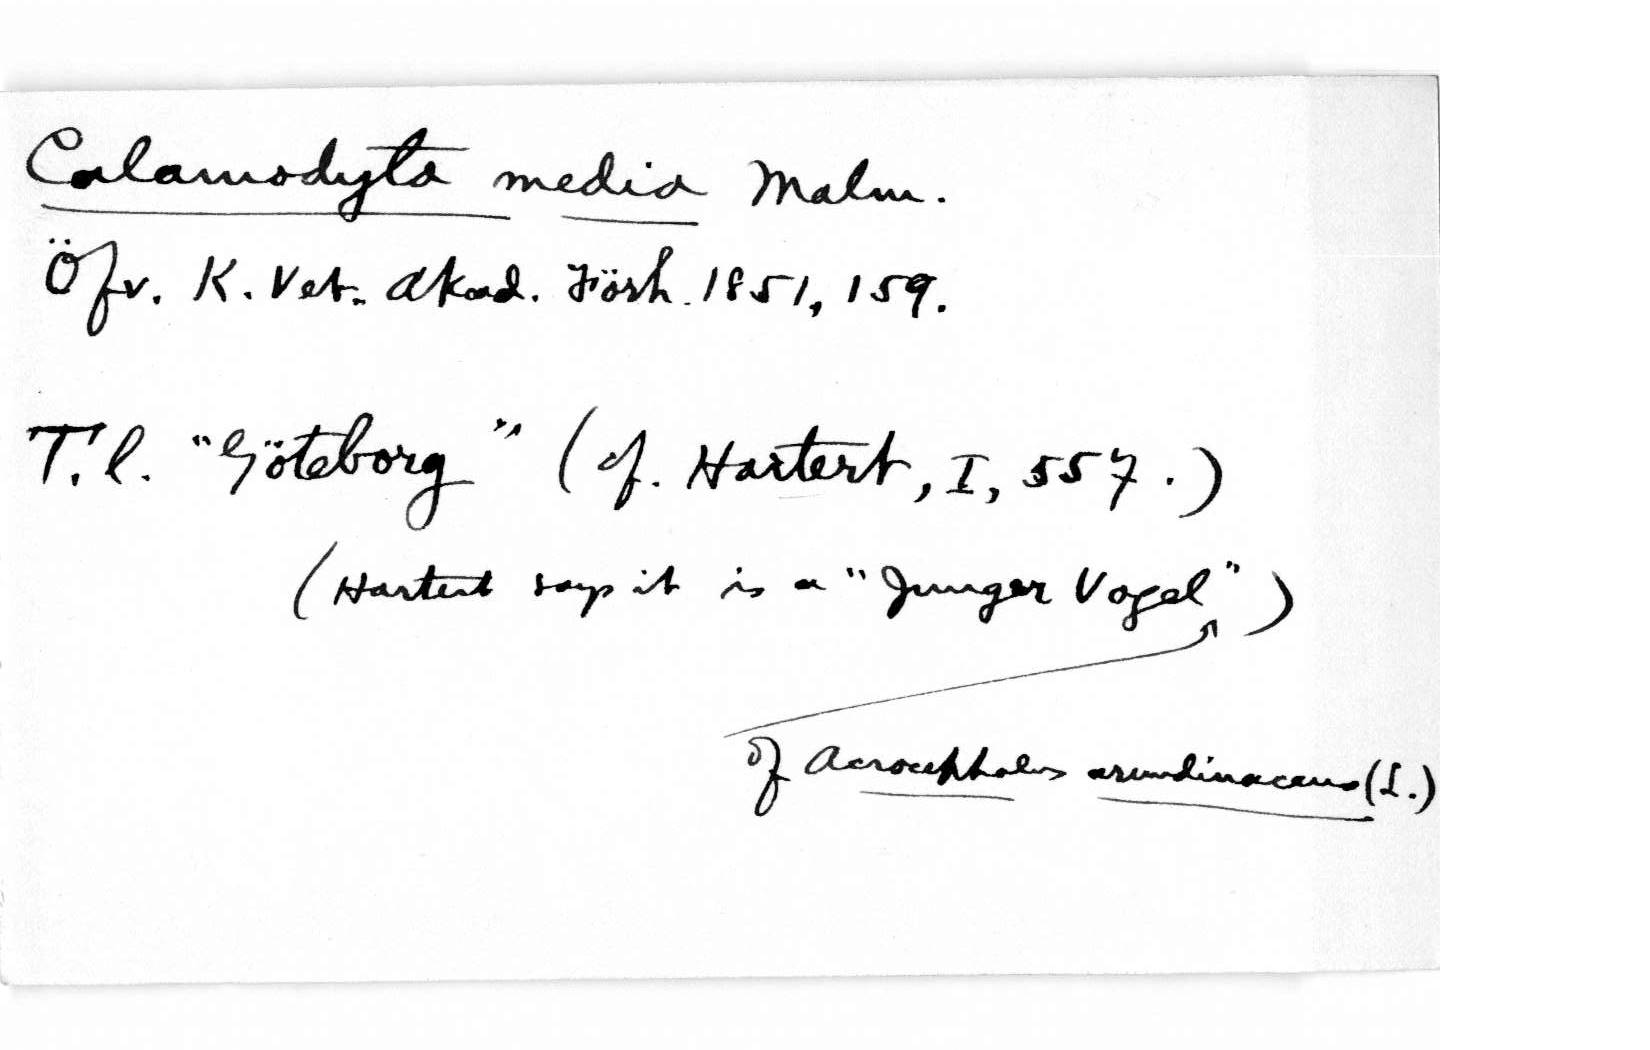 Calamodyta media Malm.
Öfv. K. Vet. Akad. Förh. 1851, 159.
T. l. "Göteborg" (cf. Hartert, I, 557.)
(Hartert says it is a "Junger Vogel")
of Acrocephalus arundinaceus (L.)